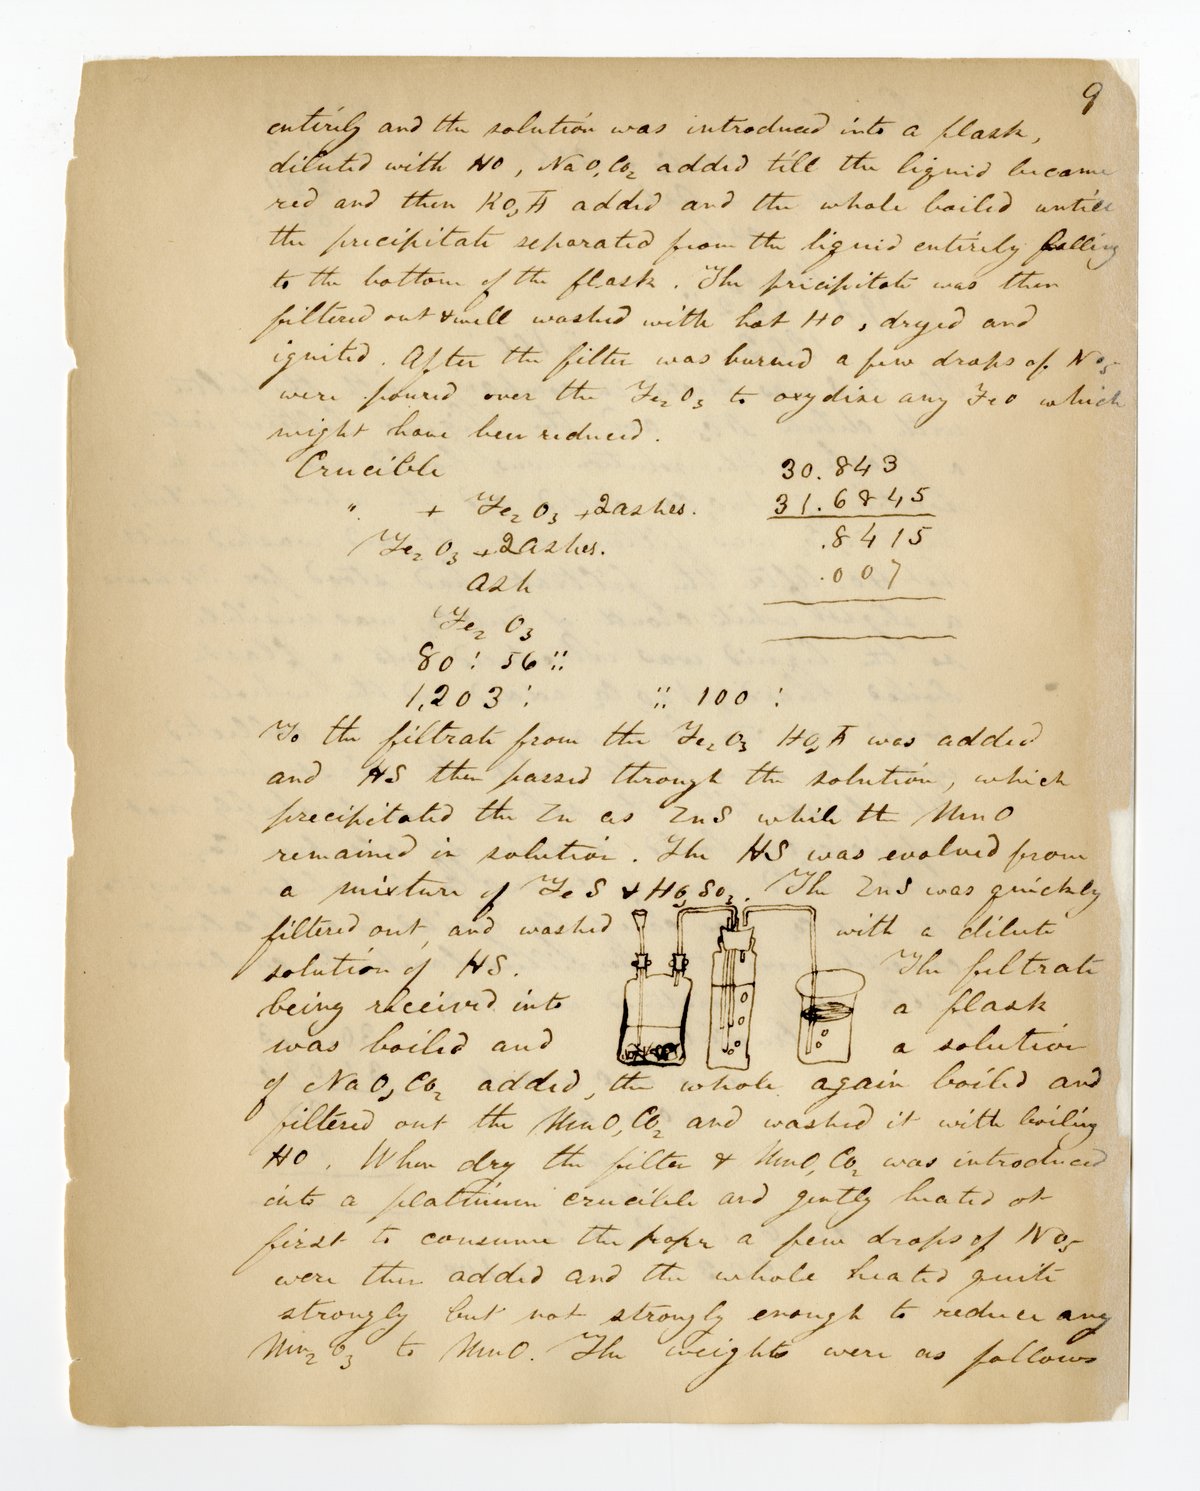 9
entirely and the solution was introduced into a flask,
diluted with HO, NaO,CO2 added till the liquid became
red and then KO,Ā added and the whole boiled untill
the precipitate separated from the liquid entirely falling
to the bottom of the flask. The pricipitate was then
filtered out & well washed with hot HO, dryed and
ignited. After the filter was burned a few drops of NO5
were poured over the Fe2O3 to oxydise any FeO which
might have been reduced.
Crucible 30.843
" + Fe2O3 + 2 ashes. 31.6845
Fe2O3 + 2 ashes. .8415
ash .007
Fe2O3
80 : 56 ::
1,203 : :: 100 :
To the filtrate from the Fe2O3 HO,Ā was added
and HS then passed through the solution, which
precipitated the Zn as ZnS while the MnO
remained in solution. The HS was evolved from
a mixture of FeS & HO,SO3. The ZnS was quickly
filtered out, and washed with a dilute
solution of HS. The filtrate
being received into a flask
was boiled and a solution
of NaO,CO2 added, the whole again boiled and
filtered out the MnO,CO2 and washed it with boiling
HO. When dry the filter & MnO,CO2 was introduced
into a platinum crucible and gently heated at
first to consume the paper a few drops of NO5
were then added and the whole heated quite
strongly but not strongly enough to reduce any
Mn2O3 to MnO. The weights were as follows